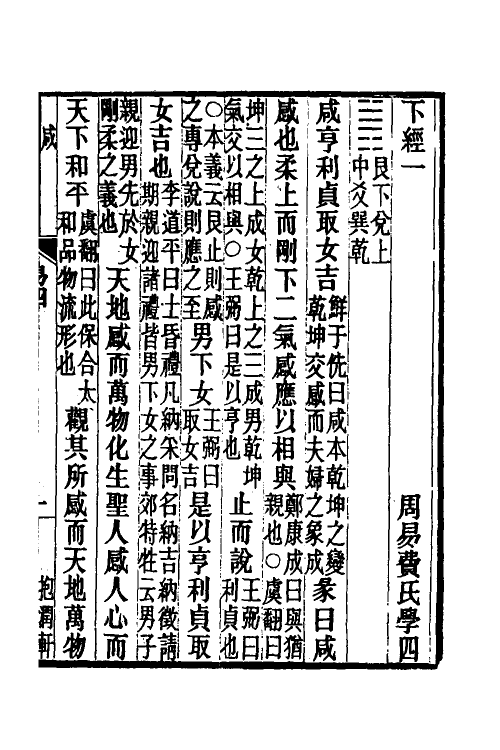 下經一　周易費氏學四
䷞ 艮下兌上
中爻巽乾
咸亨利貞取女吉 鮮于侁曰咸本乾坤之變
乾坤交感而夫婦之象成 彖曰咸
感也柔上而剛下二氣感應以相與 鄭康成曰與猶
親也○虞翻曰
坤三之上成女乾上之三成男乾坤
氣交以相與○王弼曰是以亨也 止而說 王弼曰
利貞也
○本義云艮止則感
之專兌說則應之至 男下女 王弼曰
取女吉 是以亨利貞取
女吉也 李道平曰士昏禮凡納采問名納吉納徵請
期親迎諸禮皆男下女之事郊特牲云男子
親迎男先於女
剛柔之義也 天地感而萬物化生聖人感人心而
天下和平 虞翻曰此保合太
和品物流形也 觀其所感而天地萬物
咸　易四　一　抱潤軒